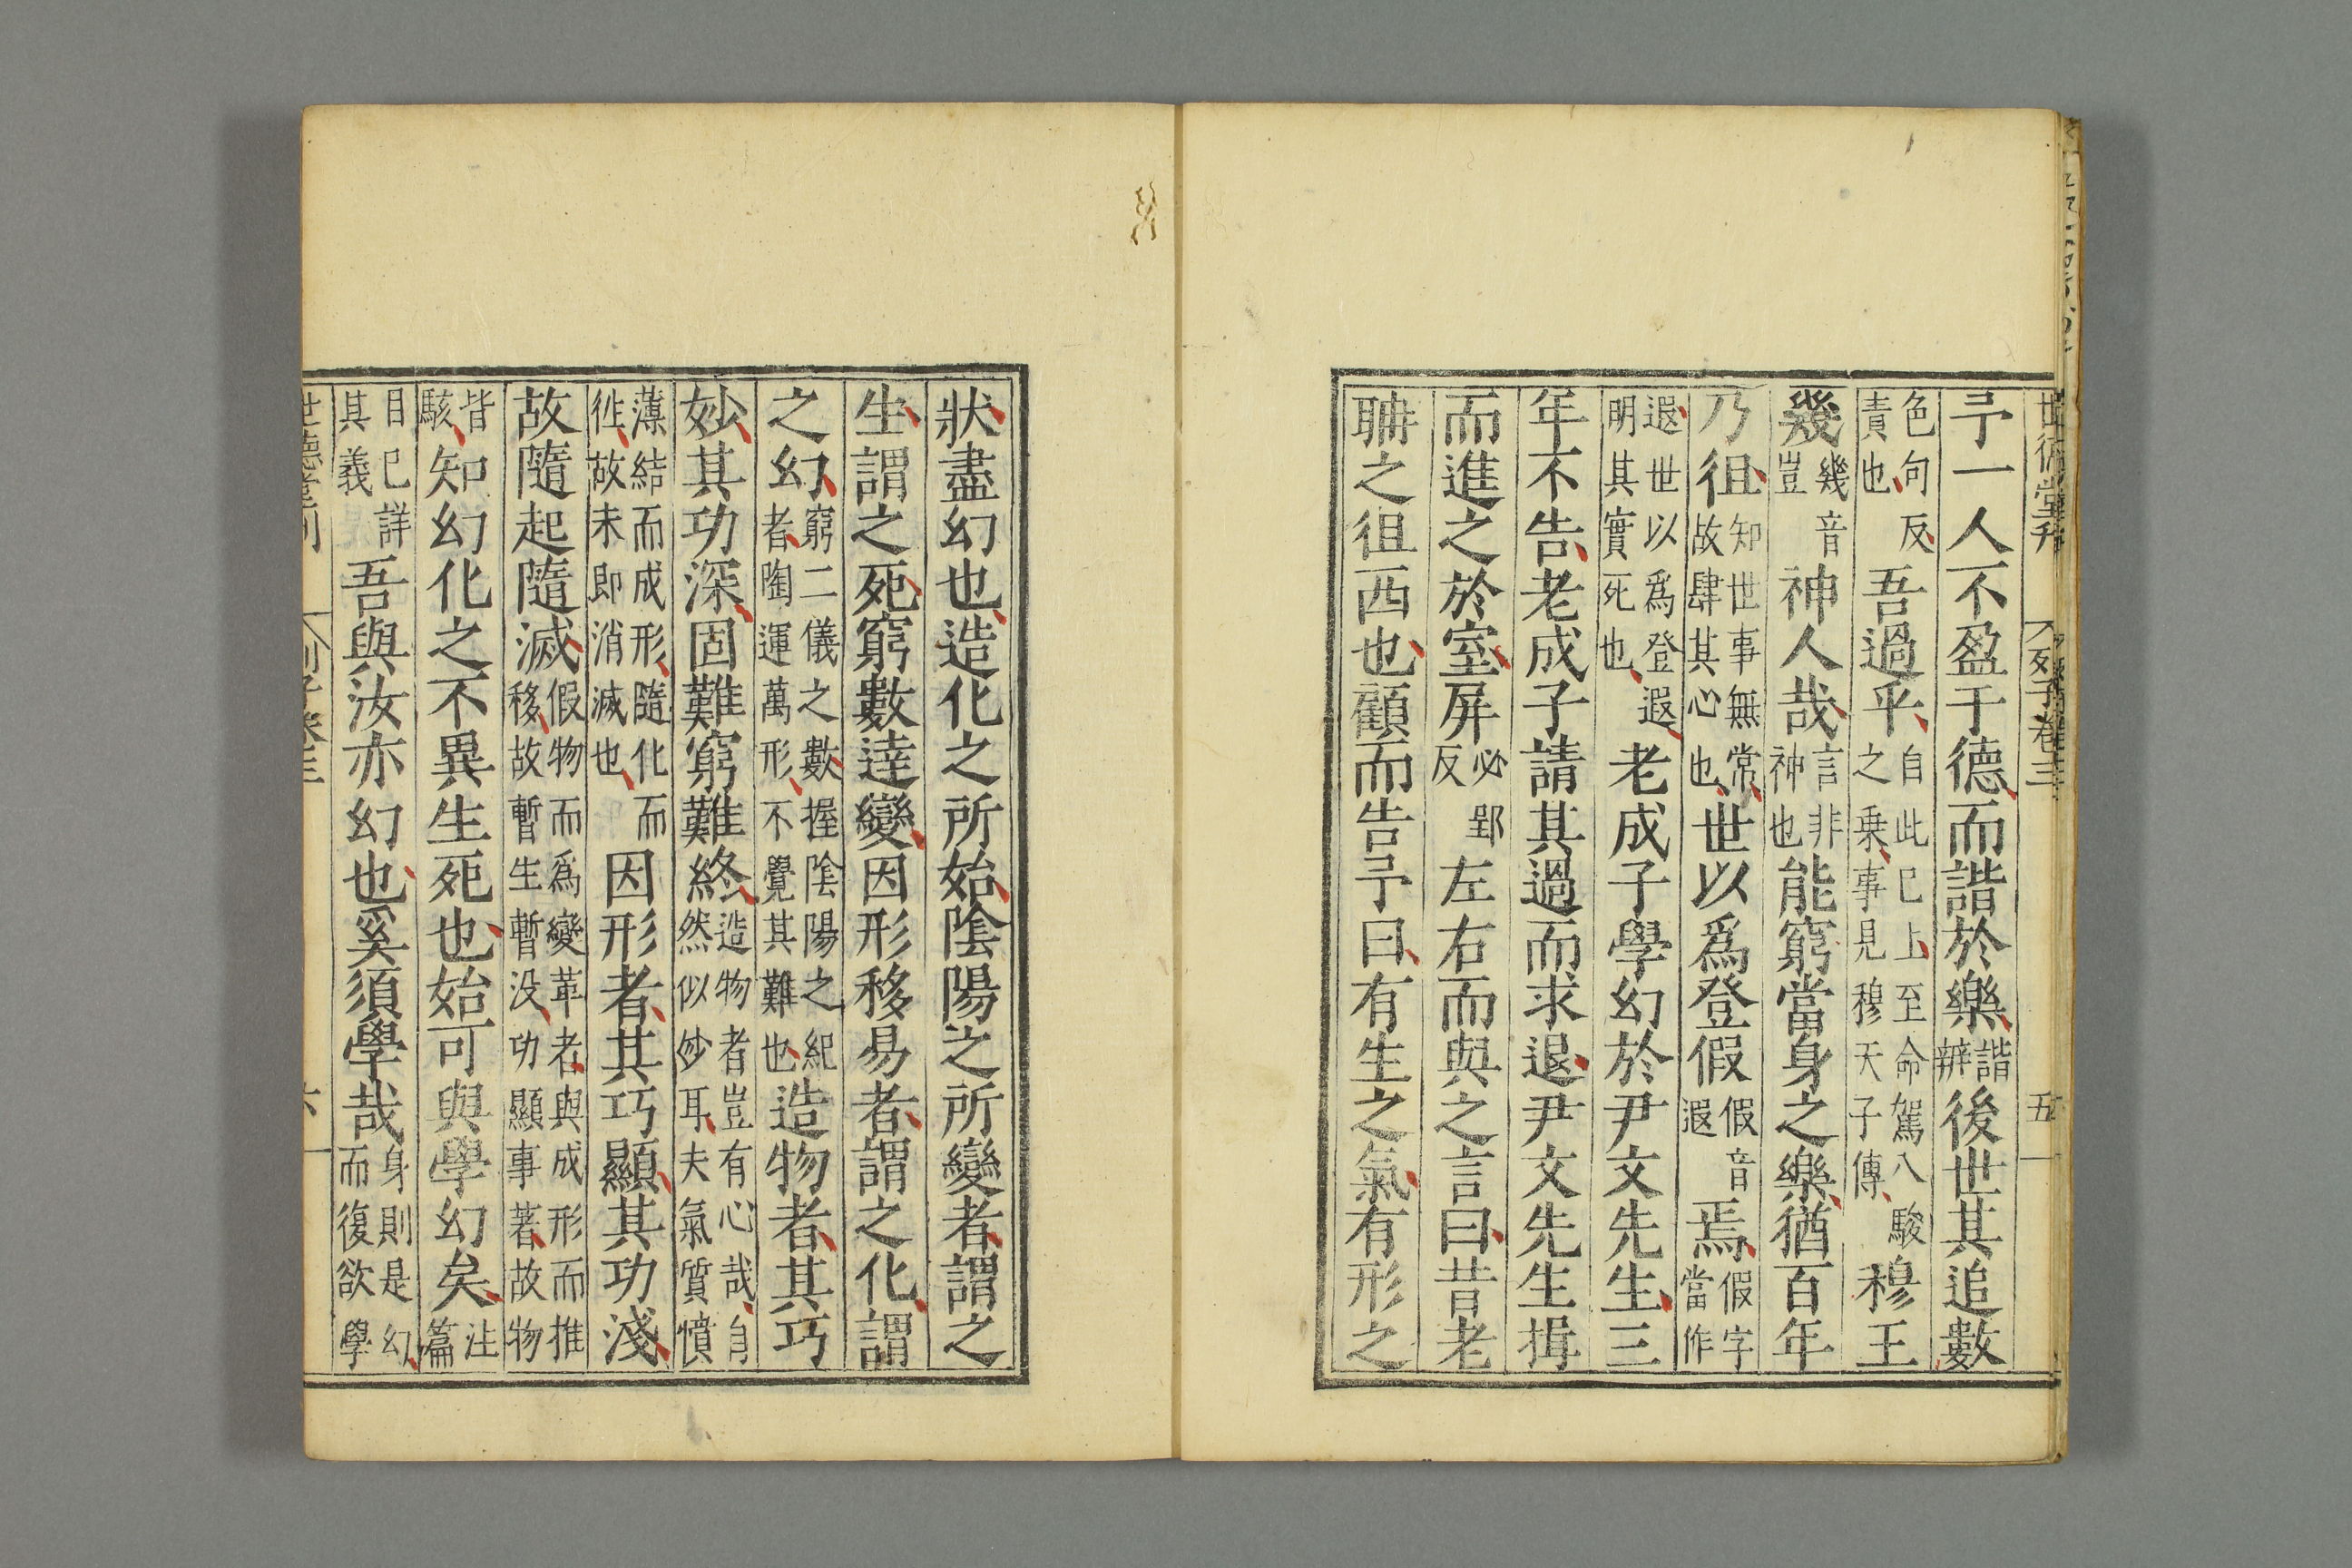 世德堂刋 列子卷三 五
予一人不盈于德而諧於樂諧辨後世其追數
色句反責也吾過乎自此已上至命駕八駿之乗事見穆天子傳穆王
幾幾音豈神人哉言非神也能窮當身之樂猶百年
乃徂知世事無常故肆其心也世以爲登假假音遐焉假字當作
遐世以爲登遐明其實死也老成子學幻於尹文先生三
年不告老成子請其過而求退尹文先生揖
而進之於室屏必郢反左右而與之言曰昔老
聃之徂西也顧而告予曰有生之氣有形之
狀盡幻也造化之所始陰陽之所變者謂之
生謂之死窮數達變因形移易者謂之化謂
之幻窮二儀之數握陰陽之紀者陶運萬形不覺其難也造物者其巧
妙其功深固難窮難終造物者豈有心哉自然似妙耳夫氣質憤
薄結而成形隨化而徃故未即消滅也因形者其巧顯其功淺
故隨起隨滅假物而爲變革者與成形而推移故暫生暫没功顯事著故物
皆駭知幻化之不異生死也始可與學幻矣注篇
目已詳其義吾與汝亦幻也奚須學哉身則是幻而復欲學
世德堂刋 列子卷三 六